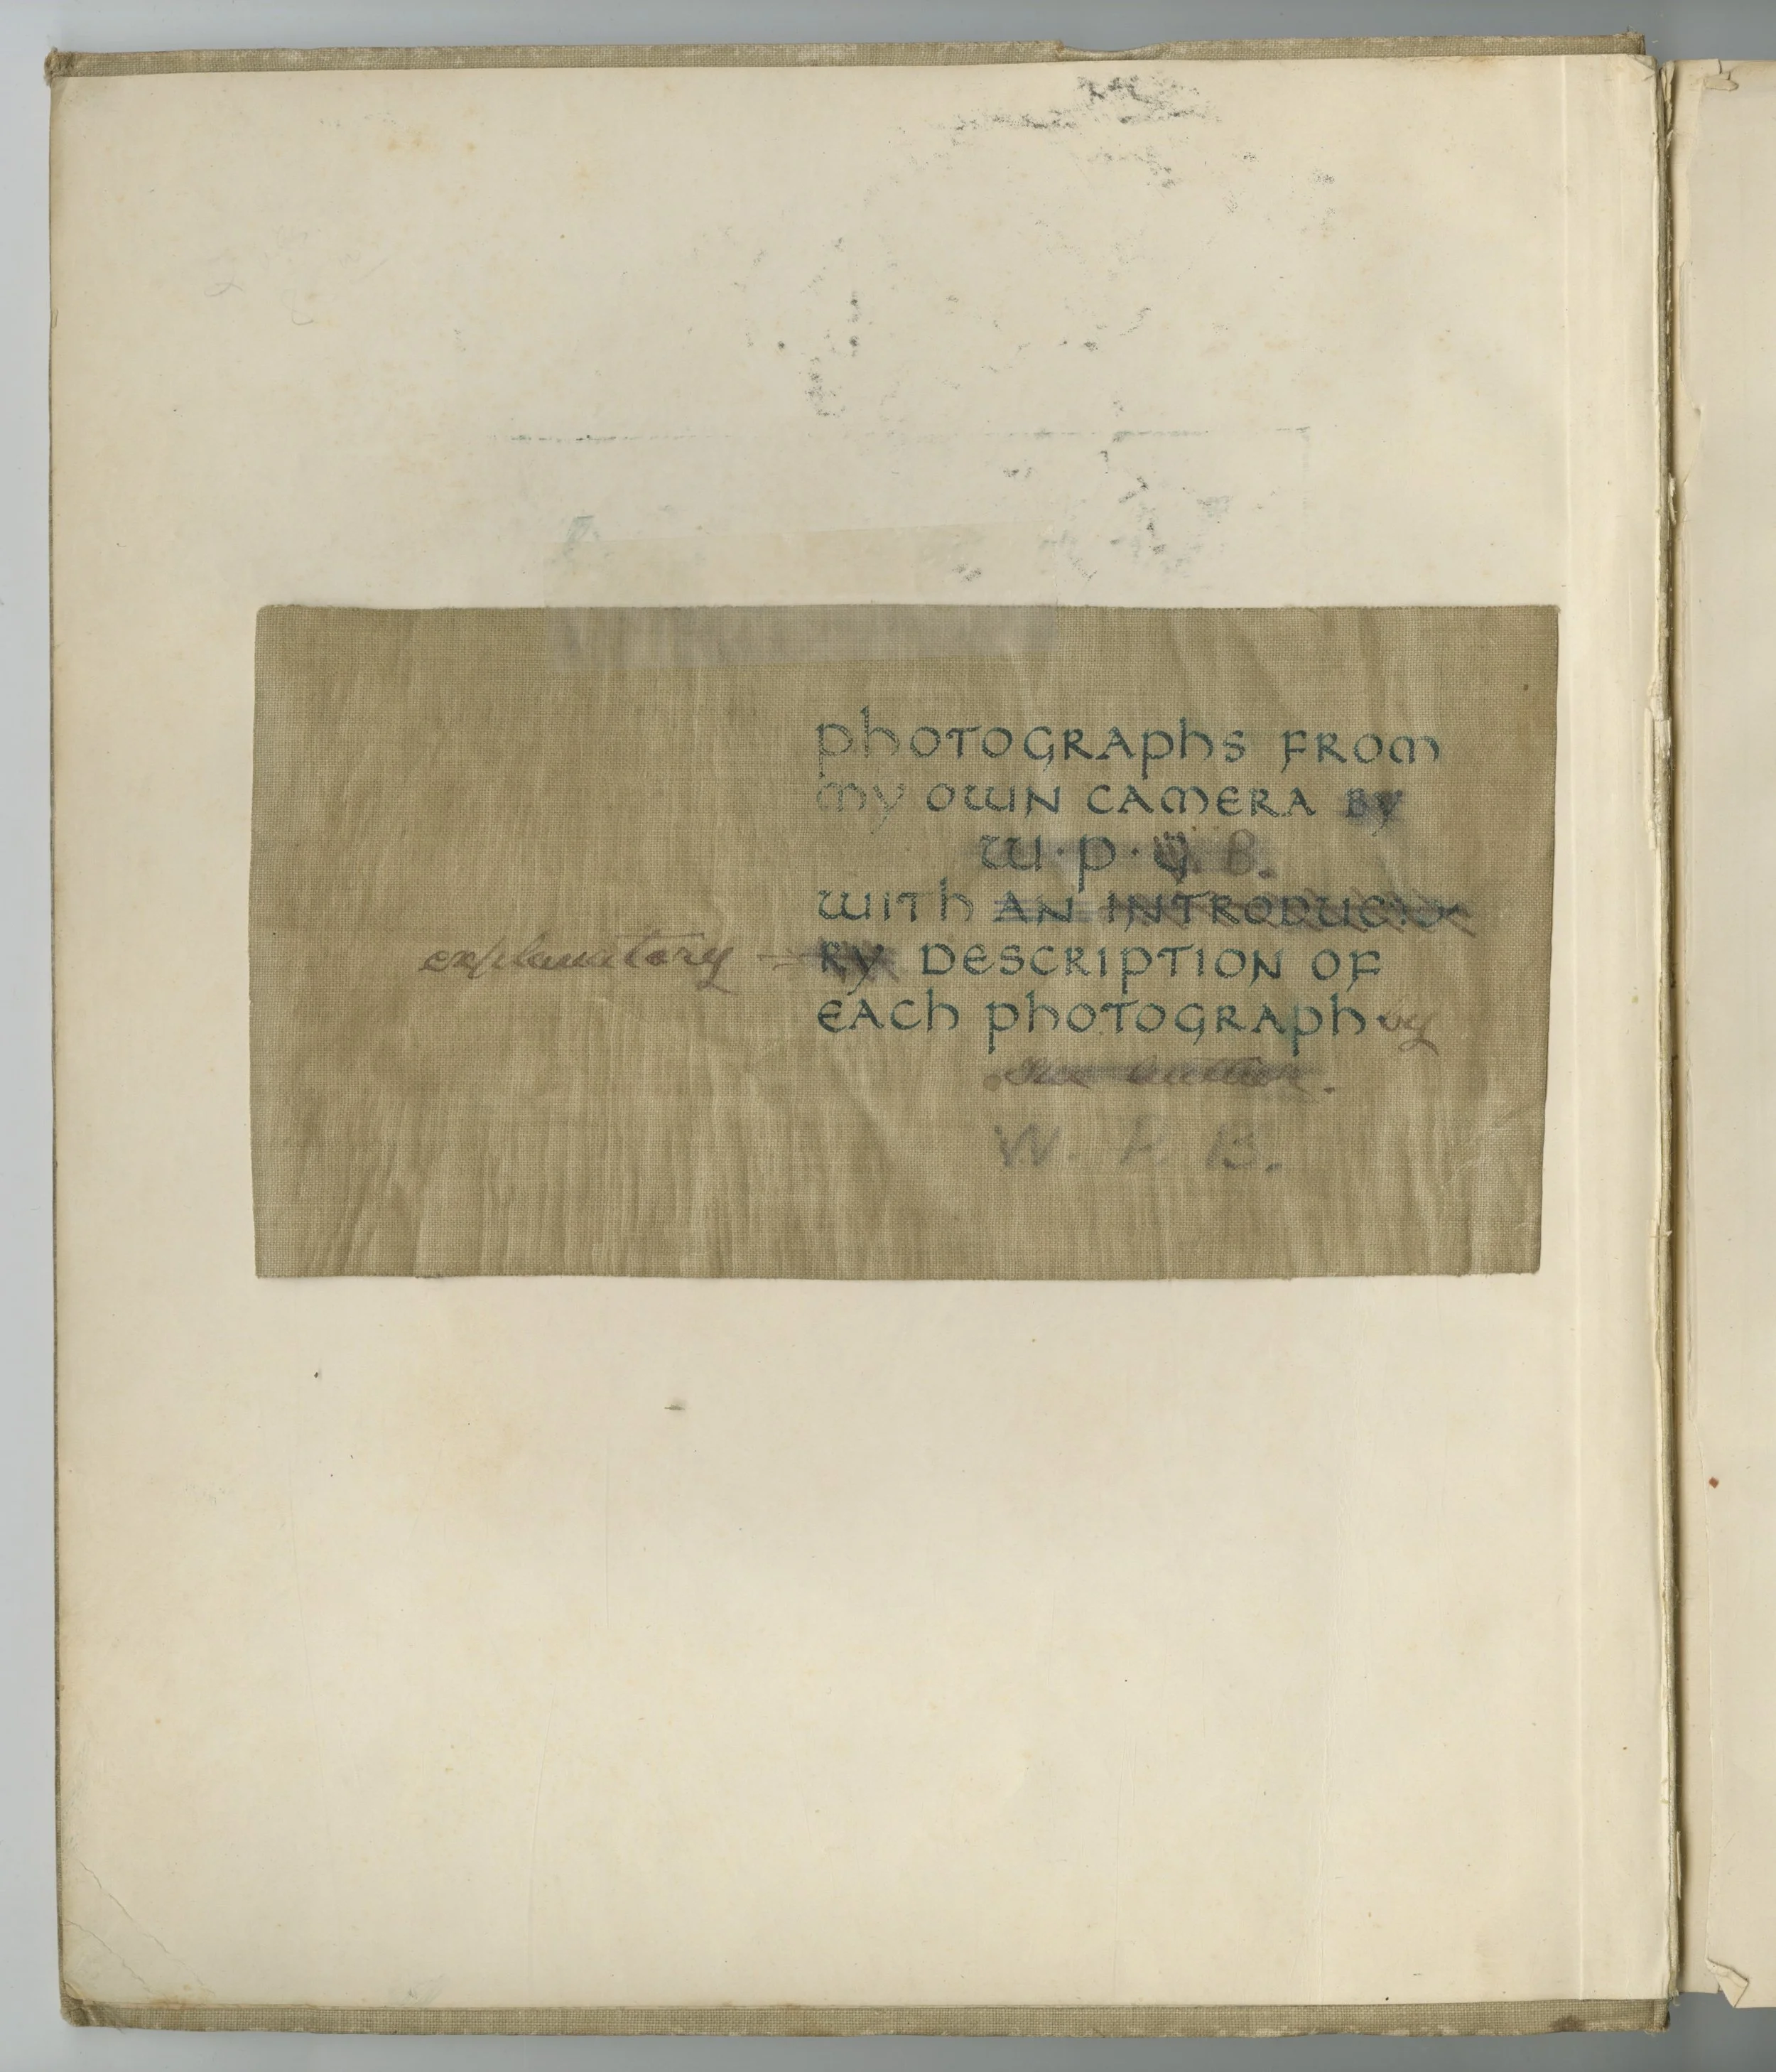 PHOTOGRAPHS FROM
MY OWN CAMERA BY
W·P· B.
WITH AN INTRODUCTO
explanatory RY DESCRIPTION OF
EACH PHOTOGRAPH by
the author.
W. P. B.